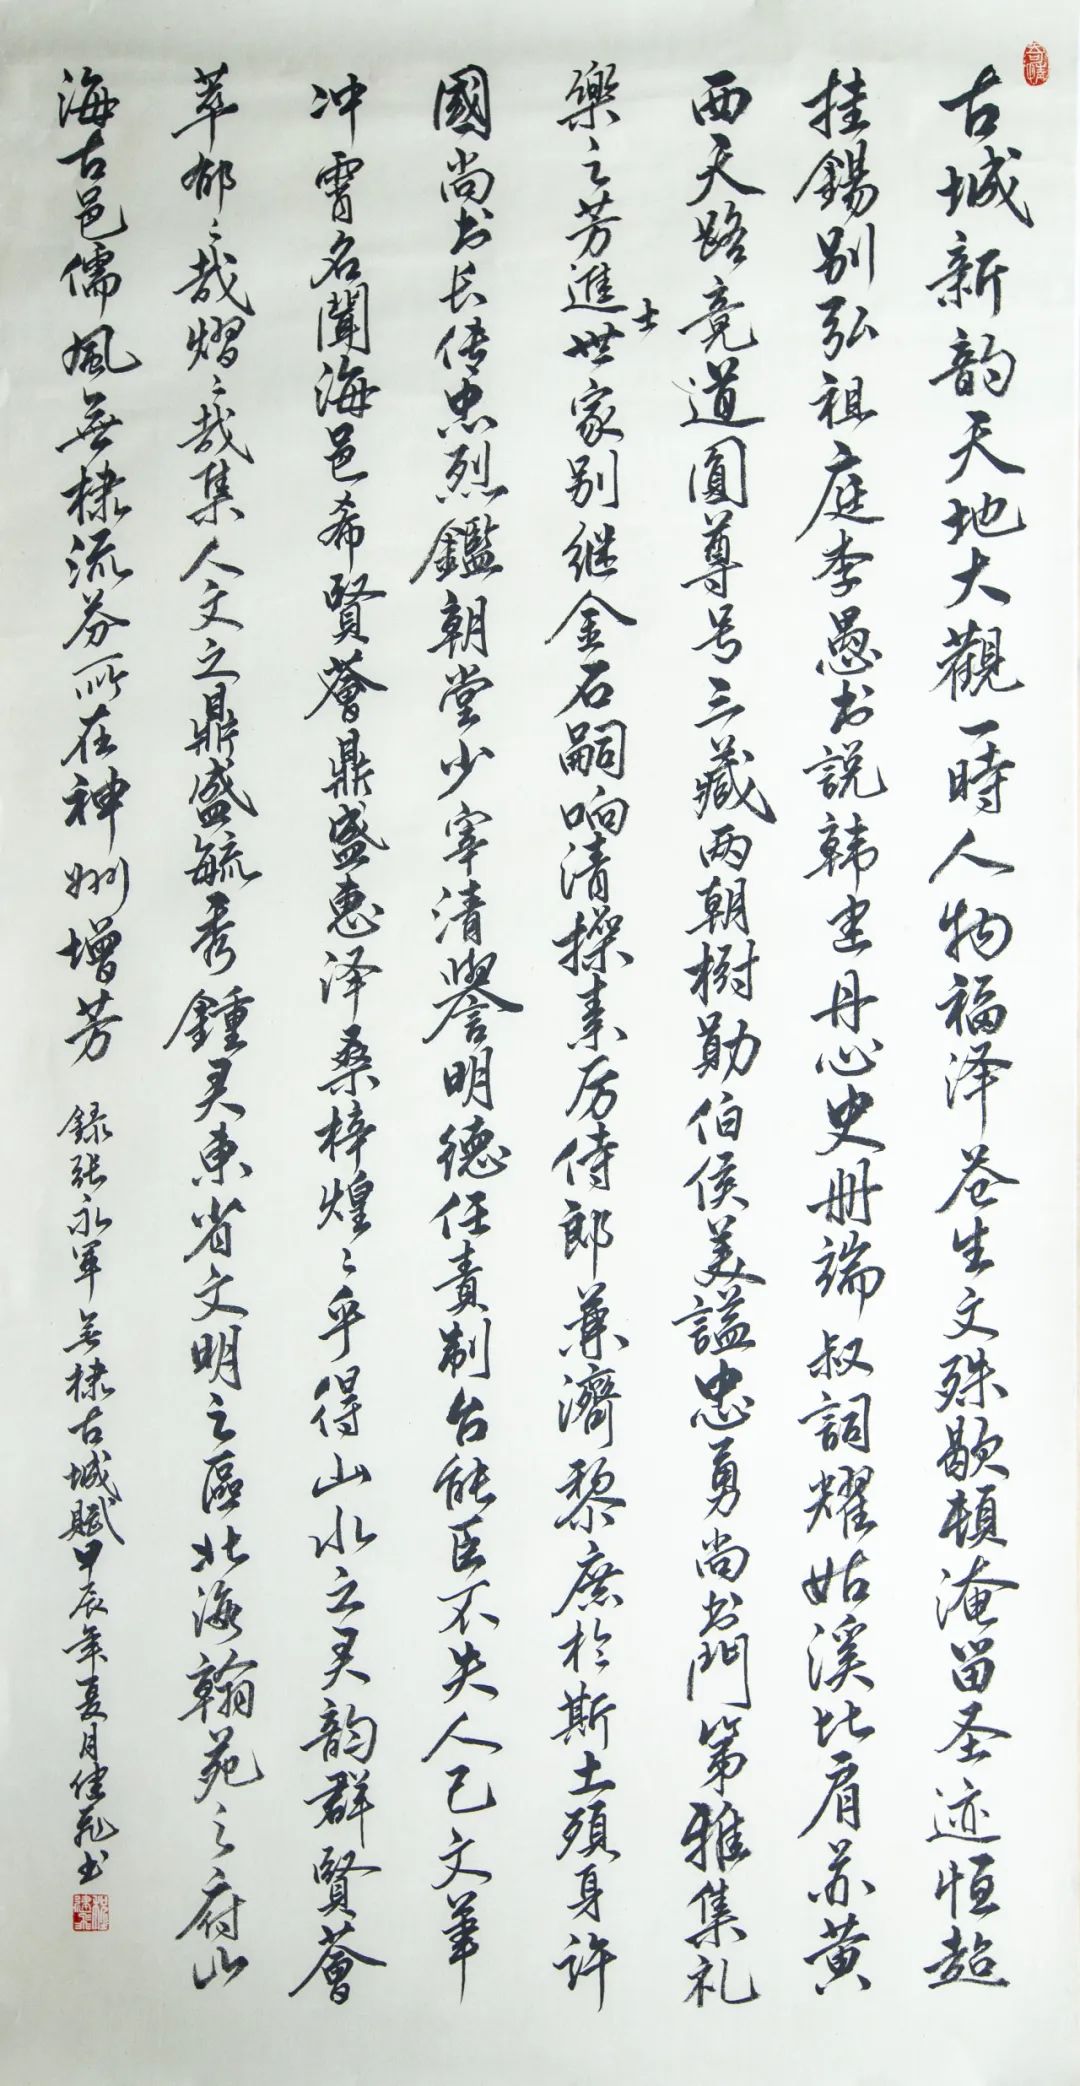 古城新韵天地大觀一時人物福泽苍生文殊歇頓淹留圣迹恒超
挂錫别弘祖庭李愚书説韩圭丹心史册端叔詞耀姑溪比肩苏黄
西天路竟道圓尊号三藏两朝樹勛伯侯美謚忠勇尚书門第雅集礼
樂之芳進士世家别继金石嗣响清操素厉侍郎兼濟黎庶於斯土殞身许
國尚书长传忠烈鑑朝堂少宰清譽明德任責制台能臣不失人己文笔
冲霄名聞海邑希賢薈鼎盛惠泽桑梓煌〻乎得山水之灵韵群賢薈
萃郁〻哉熠〻哉集人文之鼎盛毓秀鍾灵東省文明之區北海翰苑之府山
海古邑儒風無棣流芬所在神州增芳 録张永军無棣古城赋甲辰年夏月佳飛书